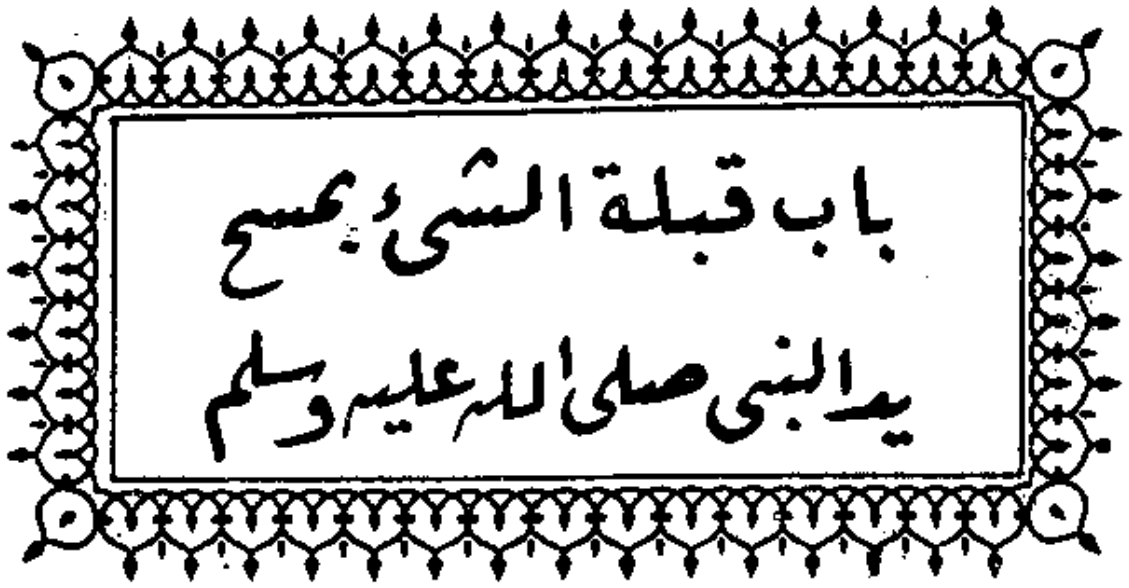 باب قبلة الشئ يمسح
يد النبي صلى الله عليه وسلم